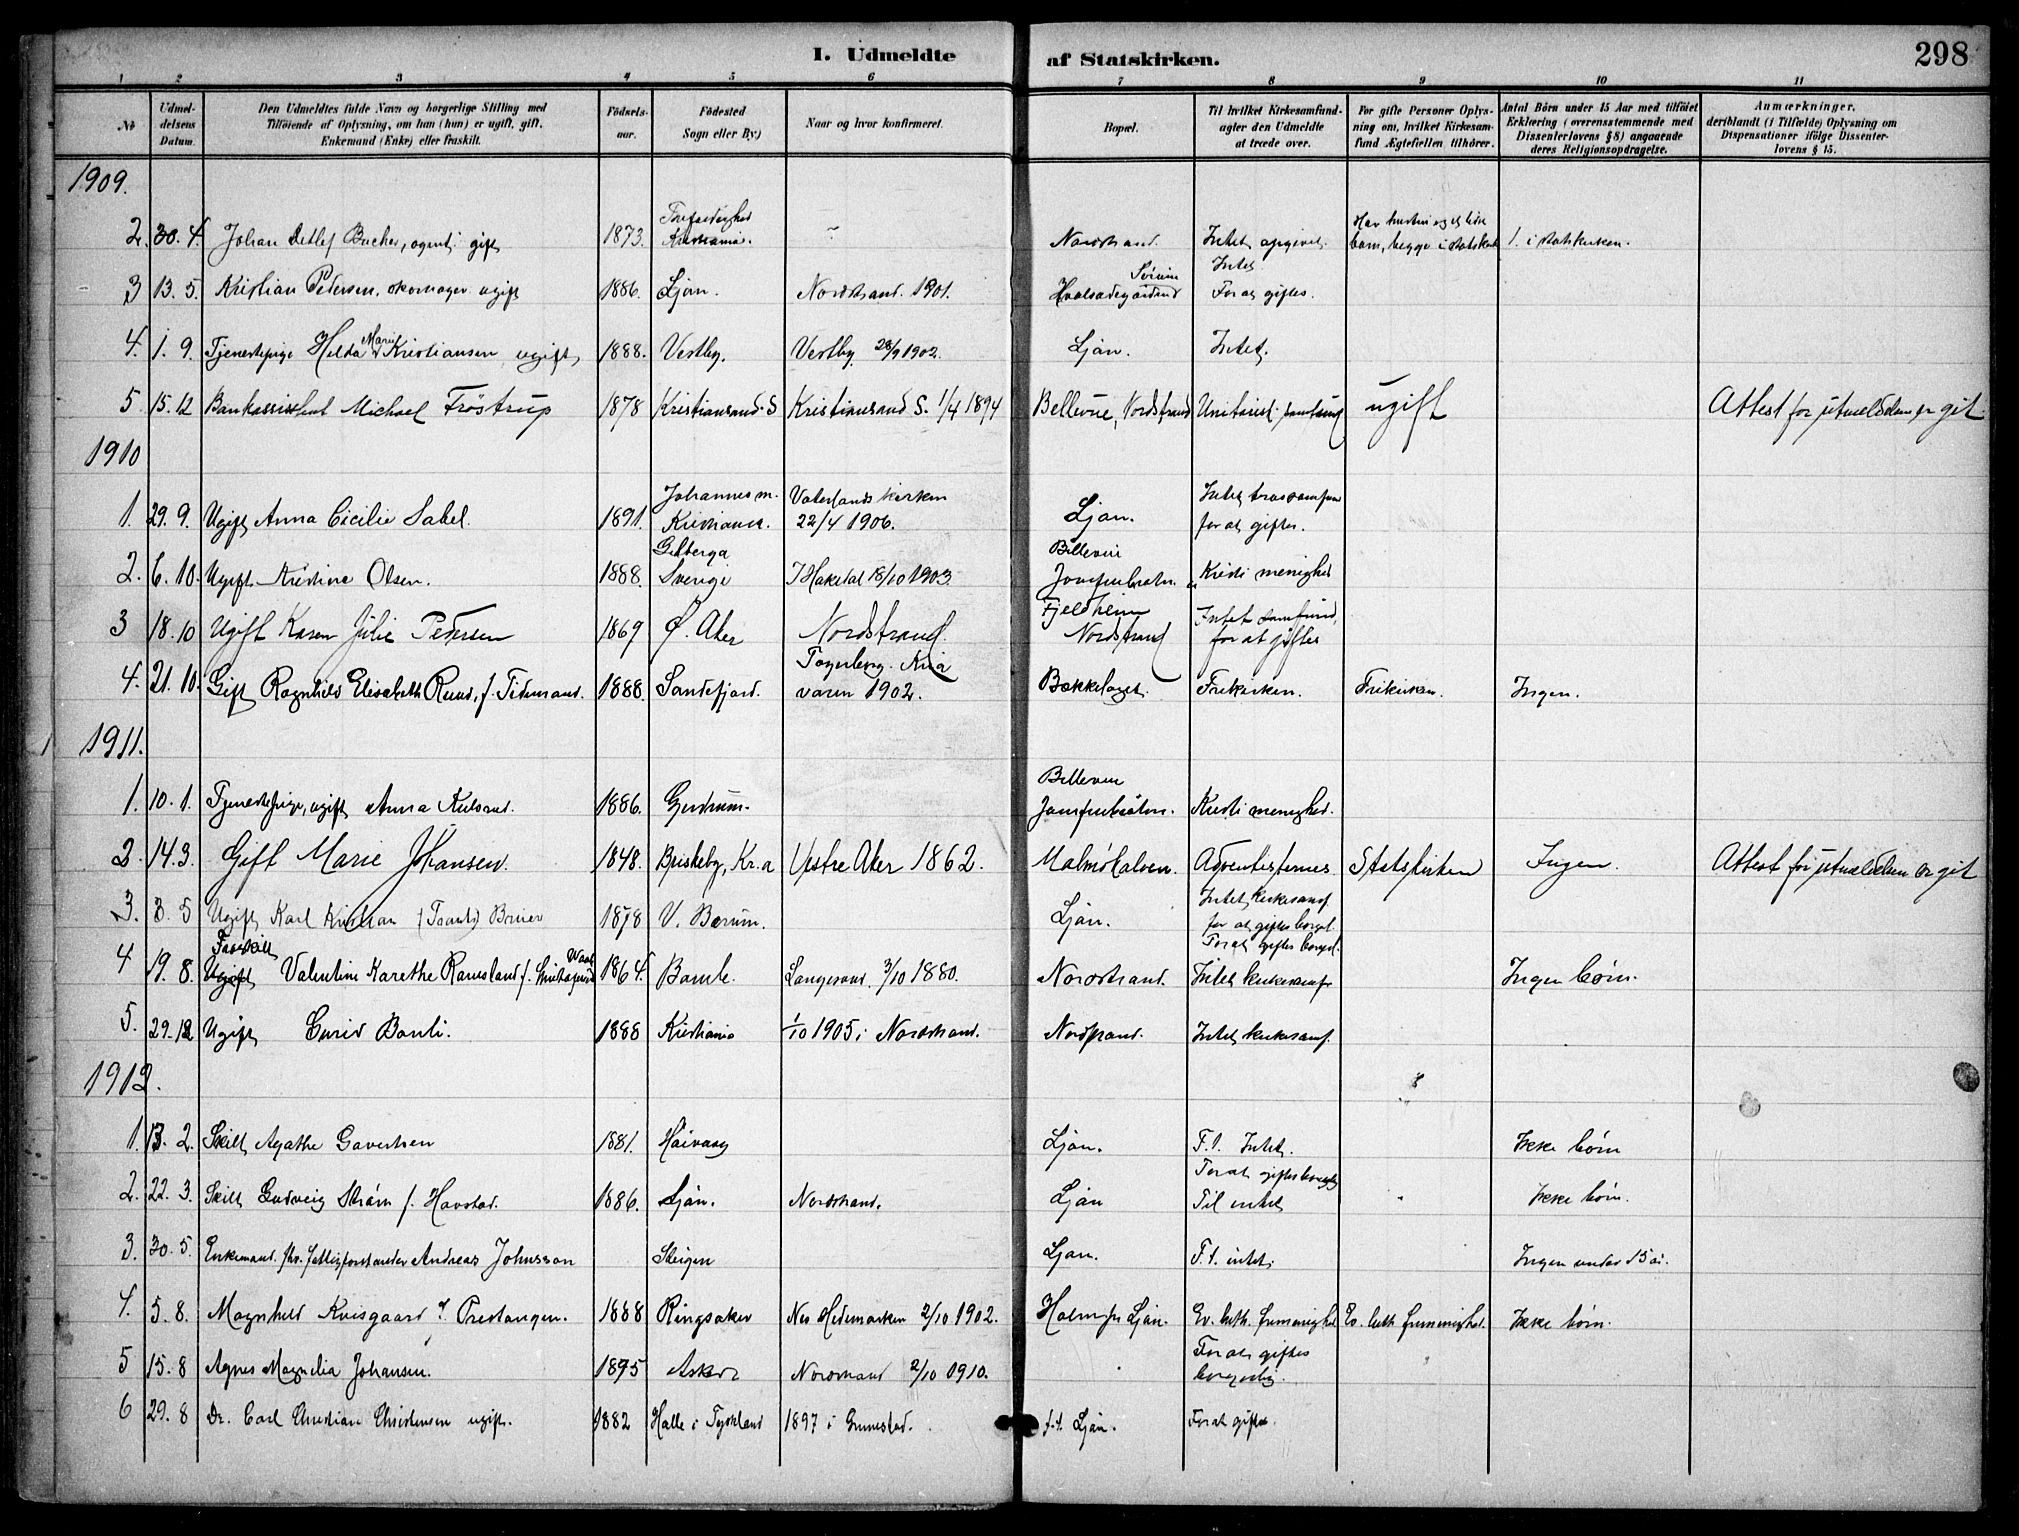 I. Udmeldte af Statskirken.
298
1 2 3 4 5 6 7 8 9 10 11
No
Udmel-
delsens
Datum.
Den Udmeldtes fulde Navn og borgerlige Stilling med
Tilföiende af Oplysning, om han (hun) er ugift, gift,
Enkemand (Enke) eller fraskilt.
Födsels-
aar.
Födested
Sogn eller By)
Naar og hvor konfirmeret.
Bopæl.
Til hvilket Kirkesamfund-
agter den Udmeldte
at træde over.
For gifte Personer Oplys-
ning om, hvilket Kirkesam-
fund Ægtefællen tilhörer.
Antal Börn under 15 Aar med tilföiet
Erklæring (overensstemmende med
Dissenterlovens § 8) angaaende
deres Religionsopdragelse.
Anmærkninger,
deriblandt (i Tilfælde) Oplysning om
Dispensationer ifölge Dissenter-
lovens § 15.
1909.
2. 30. 4. Johan Detlef Bucher, agent: gift 1873. Kristiania. Nordstrand. Intet opgivet. Har hustru og et lidet
barn, begge i statskirk 1. i statskirken.
3 13. 5. Kristian Pedersen, skomager ugift 1886. Ljan. Nordstrand. 1901. Intet.
For at giftes.
4. 1. 9. Tjenestepige Helda Marie Kristiansen, ugift 1888. Vestby. Vestby 28/9 1902. Ljan. Intet.
5. 15. 12 Bankassistent Michael Fröstrup 1878 Kristiansand. S Kristiansand S. 1/4 1894 Bellevue, Nordstrand Unitarist. samfund ugift Attest for utmeldelsen er git
1910
1. 29. 9. Ugift Anna Cecilie Sabel. 1891. Johannes m.
Kristiania. Vaterlands kirken
22/4 1906. Ljan. Intet trossamfun
for at giftes.
2. 6. 10. Ugift Kristine Olsen. 1888. Gilberga
Sverige I Hakedal 18/10 1903 Bellevue
Jomfrubraten. Kristi menighed
3 18. 10 Ugift Karen Julie Pedersen 1869 Ø. Aker Nordstrand. Fjeldheim
Nordstrand Intet samfund,
for at giftes
4. 21. 10. Gift Ragnhild Elisabeth Ruud, f. Tidemand. 1888. Sandefjord. Fagerborg. Kria
vaaren 1902. Bækkelaget. Frikirken. Frikirken. Ingen.
1911.
1. 10. 1. Tjenestepige, ugift Anna Kulsrud. 1886. Gjerdrum. Bellevue
Jomfrubråten. Kristi menighed.
2. 14. 3. Gift Marie Johansen. 1848. Briskeby, Kr.a Vestre Aker 1862. Malmökalven. Adventisternes Statskirken Ingen. Attest for utmeldelsen er git
3. 3. 5 Ugift Karl Kristian (Frants) Brüer 1878 V. Bærum. Ljan. Intet kirkesamf.
for at giftes borgel.
4 19. 8. Fraskilt
Ugift Valentine Karethe Ramsland f. 1864. Bamle. Langesund. 3/10 1880. Nordstrand. For at giftes borgel.
Intet kirkesamf Ingen börn.
5. 29. 12 Ugift Gurid Bonli. 1888 Kristiania 1/10 1905 i Nordstrand. Nordstrand. Intet kirkesamf.
1912.
1. 13. 2. Skilt, Agathe Gavertsen 1881. Höivaag Ljan. F. t. Intet. Ikke börn
2. 22. 3. Skilt Gudveig Ström f. Havstad. 1886. Ljan. Nordstrand. Ljan For at giftes borgerlig
Til intet " Ikke börn.
3. 30. 5. Enkemand. fhv. fattigforstander Andreas Johnsson Steigen Ljan. F. t. intet. Ingen under 15 år.
4. 5. 8. Magnhild Kvisgaard f. Prestangen. 1888 Ringsaker Nes Hedemarken 2/10 1902. Holm pr Ljan. Ev. luth. frimenighet Ev. luth frimenighet. Ikke börn.
5 15. 8 Agnes Magnelia Johansen. 1895 Asker Nordstrand 2/10 1910. For at giftes
borgerlig.
6 29. 8 Dr. Carl Christian Christensen ugift. 1882 Halle i Tyskland 1897 i Grimestad. f. t. Ljan. For at giftes.